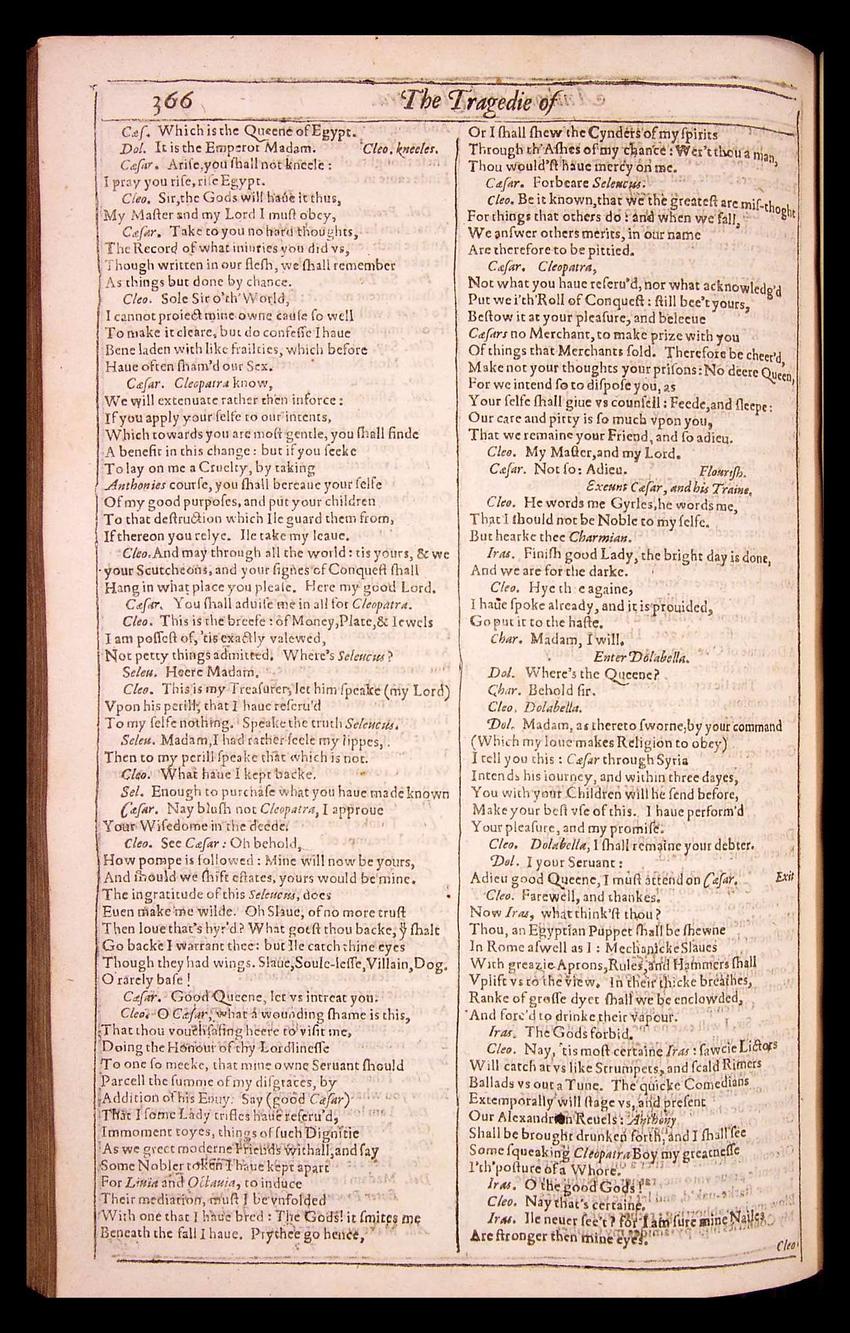 366
The Tragedie of
Cæs. Which is the Queene of Egypt.
Dol. It is the Emperor Madam. Cleo. kneeles.
Cæsar. Arise, you shall not kneele:
I pray you rise, rise Egypt.
Cleo. Sir, the Gods will haue it thus,
My Master and my Lord I must obey,
Cæsar. Take to you no hard thoughts,
The Record of what iniuries you did vs,
Though written in our flesh, we shall remember
As things but done by chance.
Cleo. Sole Sir o'th'World,
I cannot proiect mine owne cause so well
To make it cleare, but do confesse I haue
Bene laden with like frailties, which before
Haue often sham'd our Sex.
Cæsar. Cleopatra know,
We will extenuate rather then inforce:
If you apply your selfe to our intents,
Which towards you are most gentle, you shall finde
A benefit in this change: but if you seeke
To lay on me a Cruelty, by taking
Anthonies course, you shall bereaue your selfe
Of my good purposes, and put your children
To that destruction which Ile guard them from,
If thereon you relye. Ile take my leaue.
Cleo. And may through all the world: tis yours, & we
your Scutcheons, and your signes of Conquest shall
Hang in what place you please. Here my good Lord.
Cæsar. You shall aduise me in all for Cleopatra.
Cleo. This is the breefe: of Money, Plate, & Iewels
I am possest of, 'tis exactly valewed,
Not petty things admitted. Where's Seleucus?
Seleu. Heere Madam.
Cleo. This is my Treasurer, let him speake (my Lord)
Vpon his perill, that I haue reseru'd
To my selfe nothing. Speake the truth Seleucus.
Seleu. Madam, I had rather seele my lippes,
Then to my perill speake that which is not.
Cleo. What haue I kept backe.
Sel. Enough to purchase what you haue made known
Cæsar. Nay blush not Cleopatra, I approue
Your Wisedome in the deede.
Cleo. See Cæsar: Oh behold,
How pompe is followed: Mine will now be yours,
And should we shift estates, yours would be mine.
The ingratitude of this Seleucus, does
Euen make me wilde. Oh Slaue, of no more trust
Then loue that's hyr'd? What goest thou backe, ẏ shalt
Go backe I warrant thee: but Ile catch thine eyes
Though they had wings. Slaue, Soule-lesse, Villain, Dog.
O rarely base!
Cæsar. Good Queene, let vs intreat you.
Cleo. O Cæsar, what a wounding shame is this,
That thou vouchsafing heere to visit me,
Doing the Honour of thy Lordlinesse
To one so meeke, that mine owne Seruant should
Parcell the summe of my disgraces, by
Addition of his Enuy. Say (good Cæsar)
That I some Lady trifles haue reseru'd,
Immoment toyes, things of such Dignitie
As we greet moderne Friends withall, and say
Some Nobler token I haue kept apart
For Liuia and Octauia, to induce
Their mediation, must I be vnfolded
With one that I haue bred: The Gods! it smites me
Beneath the fall I haue. Prythee go hence,
Or I shall shew the Cynders of my spirits
Through th'Ashes of my chance: Wer't thou a man,
Thou would'st haue mercy on me.
Cæsar. Forbeare Seleucus.
Cleo. Be it known, that we the greatest are mis-thoght
For things that others do: and when we fall,
We answer others merits, in our name
Are therefore to be pittied.
Cæsar. Cleopatra,
Not what you haue reseru'd, nor what acknowledg'd
Put we i'th'Roll of Conquest: still bee't yours,
Bestow it at your pleasure, and beleeue
Cæsars no Merchant, to make prize with you
Of things that Merchants sold. Therefore be cheer'd,
Make not your thoughts your prisons: No deere Queen,
For we intend so to dispose you, as
Your selfe shall giue vs counsell: Feede, and sleepe:
Our care and pitty is so much vpon you,
That we remaine your Friend, and so adieu.
Cleo. My Master, and my Lord.
Cæsar. Not so: Adieu. Flourish.
Exeunt Cæsar, and his Traine.
Cleo. He words me Gyrles, he words me,
That I should not be Noble to my selfe.
But hearke thee Charmian.
Iras. Finish good Lady, the bright day is done,
And we are for the darke.
Cleo. Hye th e againe,
I haue spoke already, and it is prouided,
Go put it to the haste.
Char. Madam, I will.
Enter Dolabella.
Dol. Where's the Queene?
Char. Behold sir.
Cleo. Dolabella.
Dol. Madam, as thereto sworne, by your command
(Which my loue makes Religion to obey)
I tell you this: Cæsar through Syria
Intends his iourney, and within three dayes,
You with your Children will he send before,
Make your best vse of this. I haue perform'd
Your pleasure, and my promise.
Cleo. Dolabella, I shall remaine your debter.
Dol. I your Seruant:
Adieu good Queene, I must attend on Cæsar. Exit
Cleo. Farewell, and thankes.
Now Iras, what think'st thou?
Thou, an Egyptian Puppet shall be shewne
In Rome aswell as I: Mechanicke Slaues
With greazie Aprons, Rules, and Hammers shall
Vplift vs to the view. In their thicke breathes,
Ranke of grosse dyet shall we be enclowded,
And forc'd to drinke their vapour.
Iras. The Gods forbid.
Cleo. Nay, 'tis most certaine Iras: sawcie Lictors
Will catch at vs like Strumpets, and scald Rimers
Ballads vs out a Tune. The quicke Comedians
Extemporally will stage vs, and present
Our Alexandrian Reuels: Anthony
Shall be brought drunken forth, and I shall see
Some squeaking Cleopatra Boy my greatnesse
I'th'posture of a Whore.
Iras. O the good Gods!
Cleo. Nay that's certaine.
Iras. Ile neuer see't? for I am sure mine Nailes
Are stronger then mine eyes.
Cleo